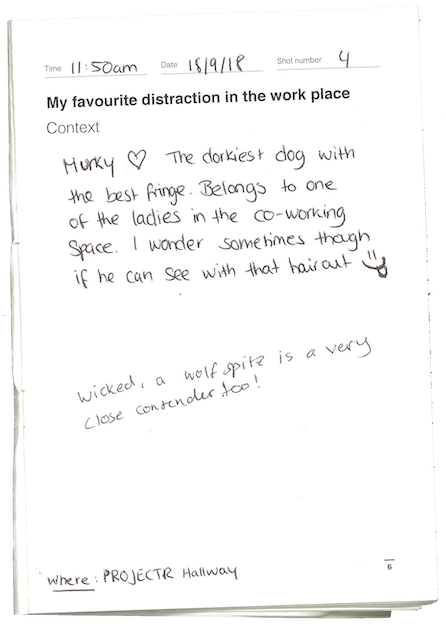 Time 11:50am Date 18/9/18 Shot number 4
My favourite distraction in the work place
Context
Murky ♡ The dorkiest dog with
the best fringe. Belongs to one
of the ladies in the co-working
space. I wonder sometimes though
if he can see with that haircut
wicked, a wolf spitz is a very
close contender too!
Where: PROJECTR Hallway
6